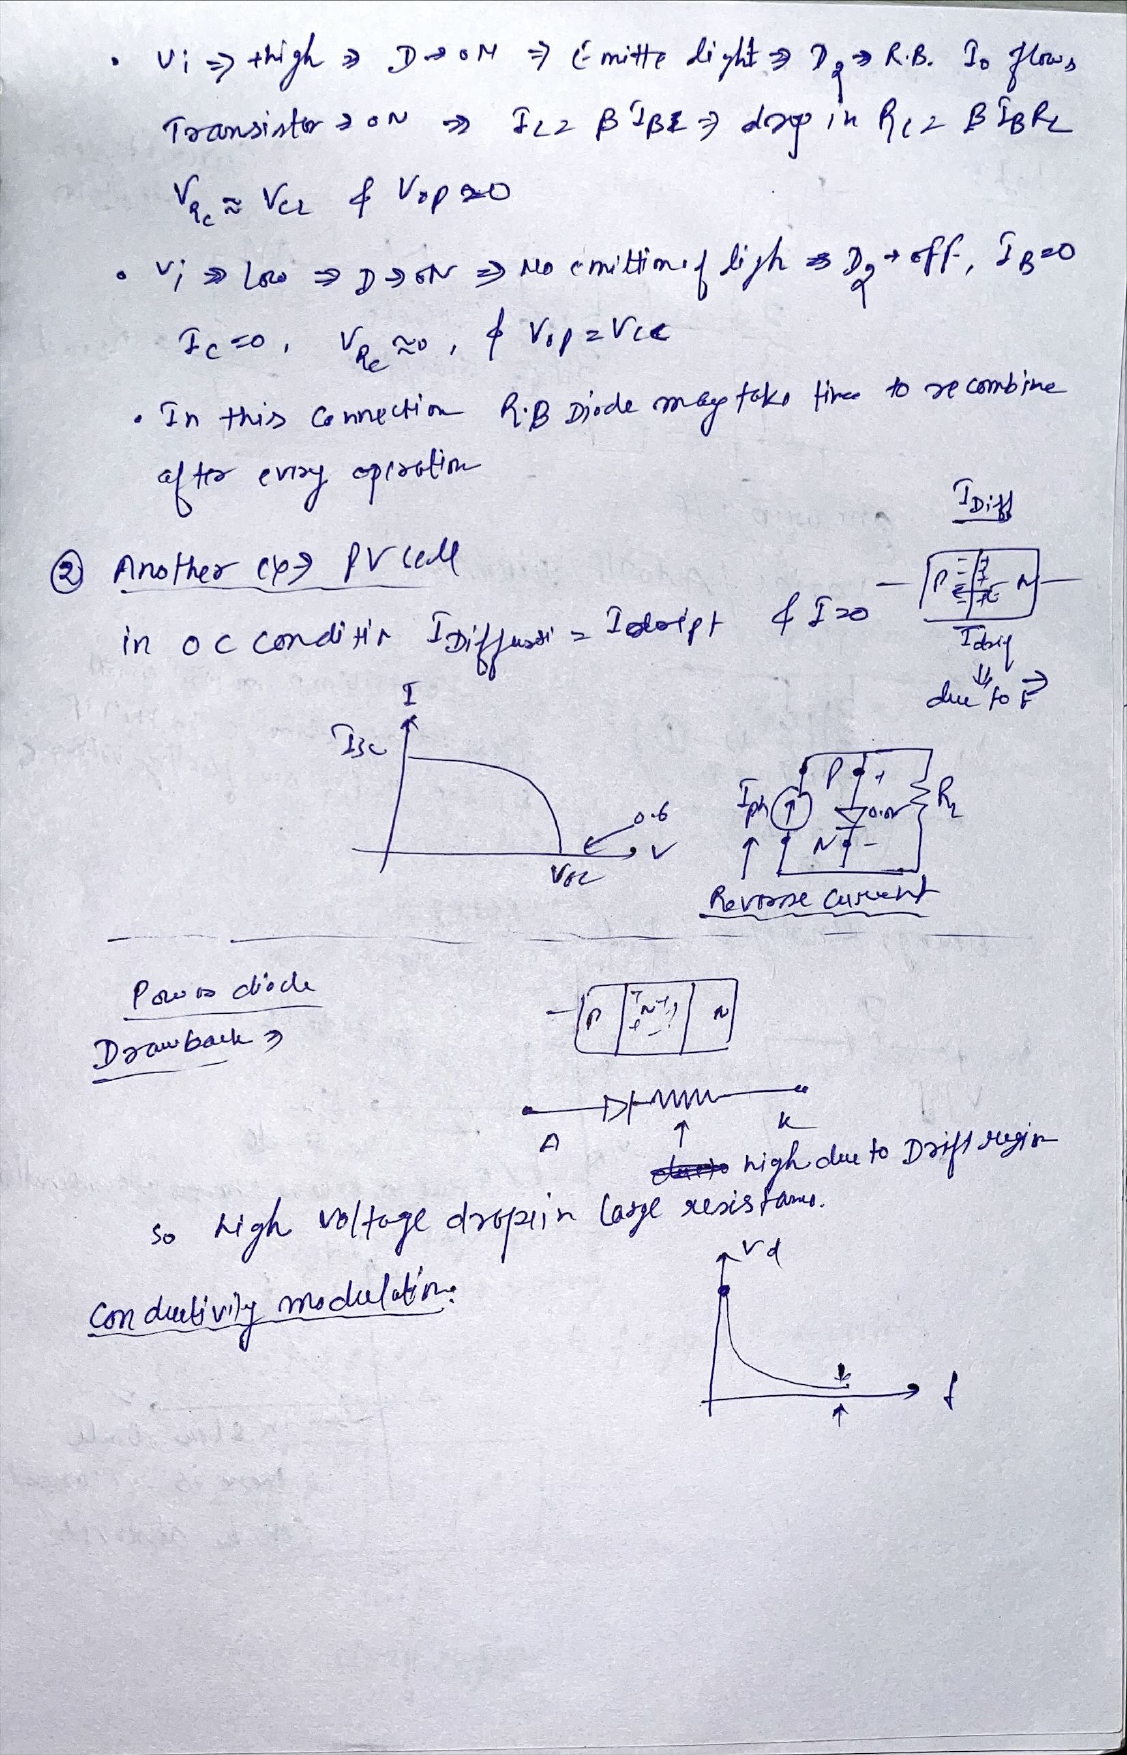 • Vi ⇒ High ⇒ D → ON ⇒ Emitte light ⇒ D2 ⇒ R.B. Io flows
Transistor ⇒ ON ⇒ IC = β IB ⇒ drop in RC = β IB RC
VRC ≈ VCC & Vop ≈ 0
• Vi ⇒ Low ⇒ D → ON ⇒ No emittion of ligh ⇒ D2 → off, IB = 0
IC = 0, VRC ≈ 0, & Vop = VCC
• In this Connection R.B Diode may take time to recombine
after every operation
IDiff
② Another ex ⇒ PV cell
P N
in OC condition IDiffussi = Idript & I = 0
Idrif
⇓
due to E
I
ISC
0.6
V
VOC
Iph
P +
N -
RL
Reverse Current
Power diode
P N- N
Drawback ⇒
A K
high due to Drift region
so high voltage drop in large resistance.
Vd
Conductivity modulation:
t